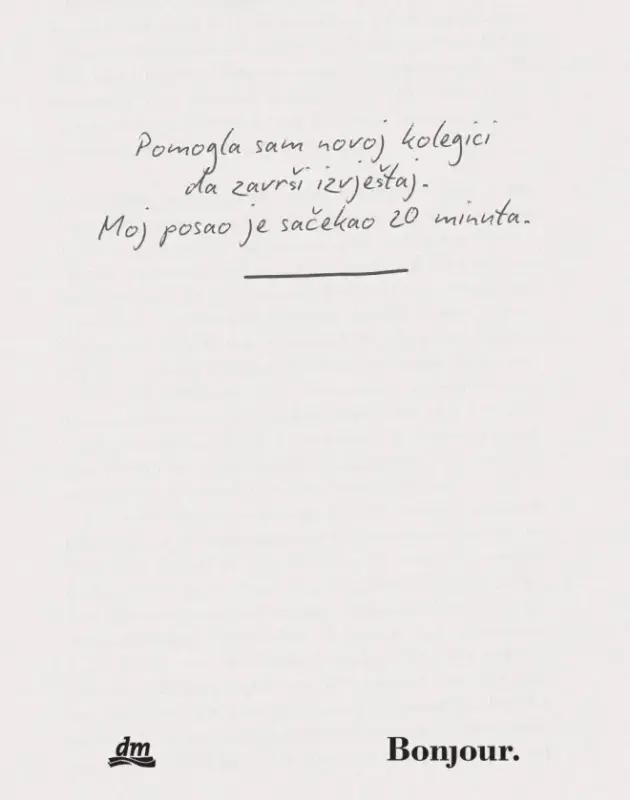 Pomogla sam novoj kolegici
da završi izvještaj.
Moj posao je sačekao 20 minuta.
dm
Bonjour.